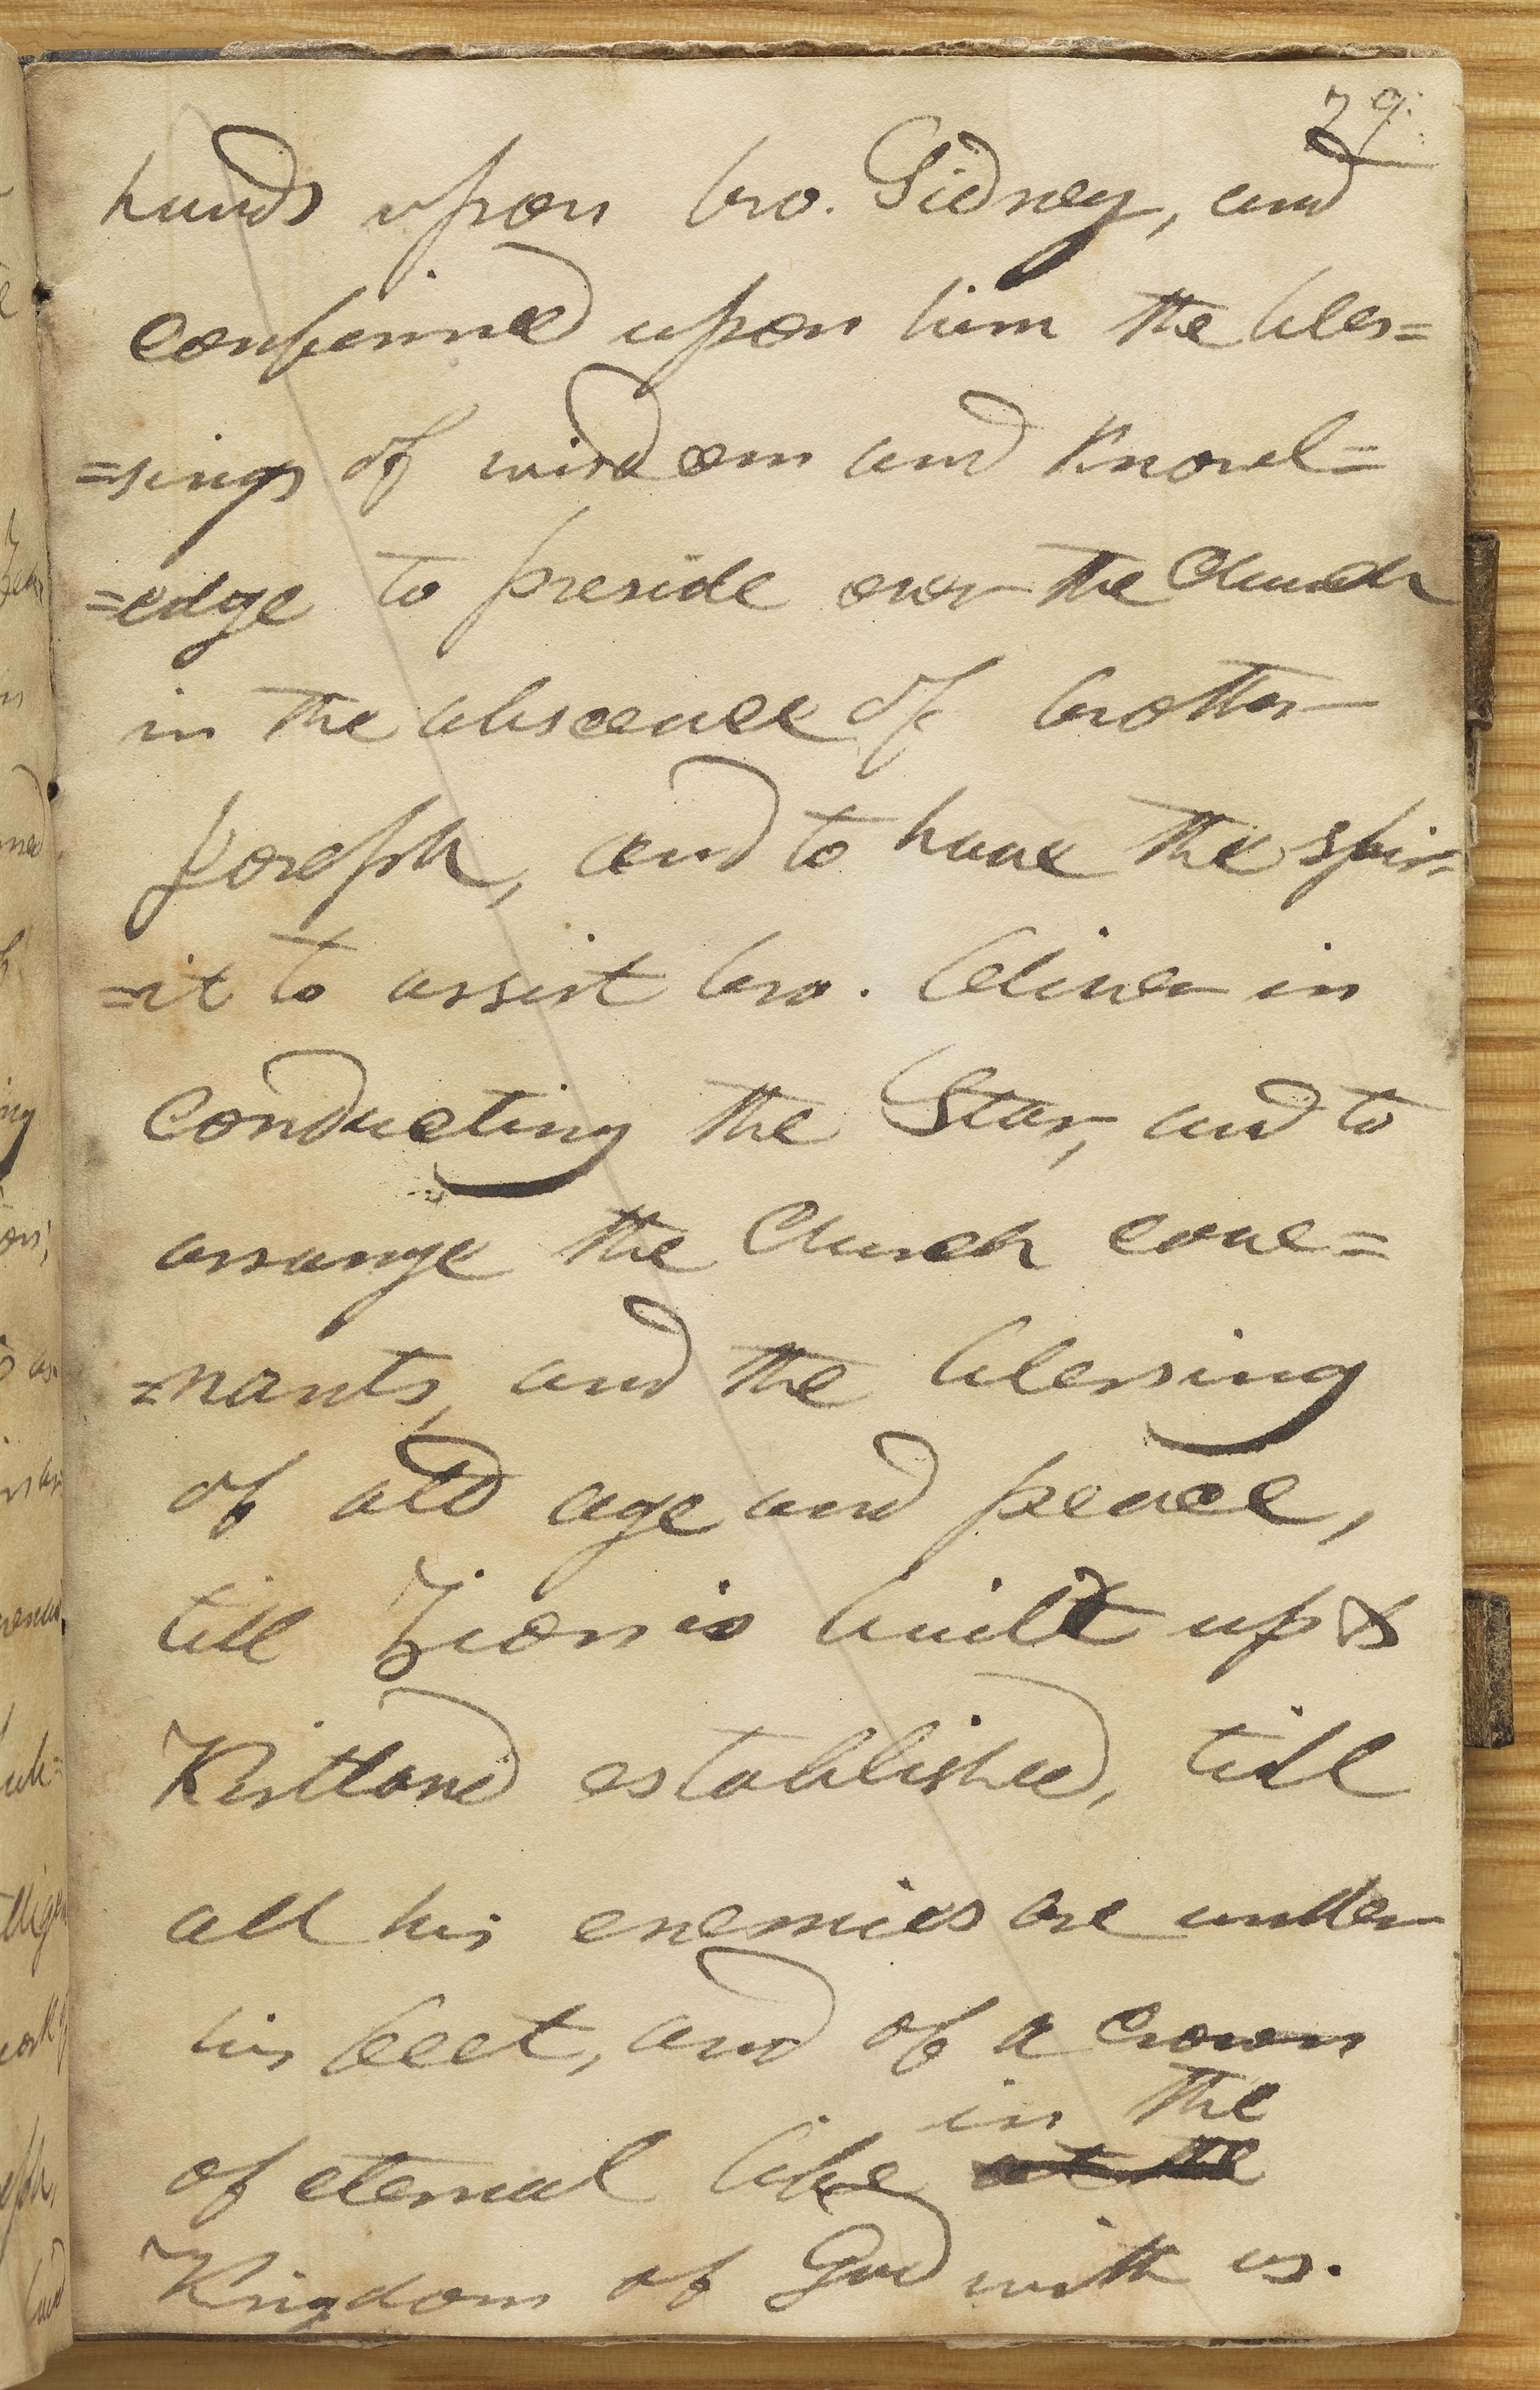 29.
hands upon bro. Sidney, and
confirmed upon him the bles=
=sings of wisdom and knowl=
=edge to preside over the Church
in the abscence of brother
Joseph, and to have the spir=
=it to assist bro. Oliver in
conducting the Star, and to
arrange the Church cove=
=nants, and the blessing
of old age and peace,
till Zion is built up &
Kirtland established, till
all his enemies are under
his feet, and of a crown
in the
of eternal life at the
Kingdom of God with us.